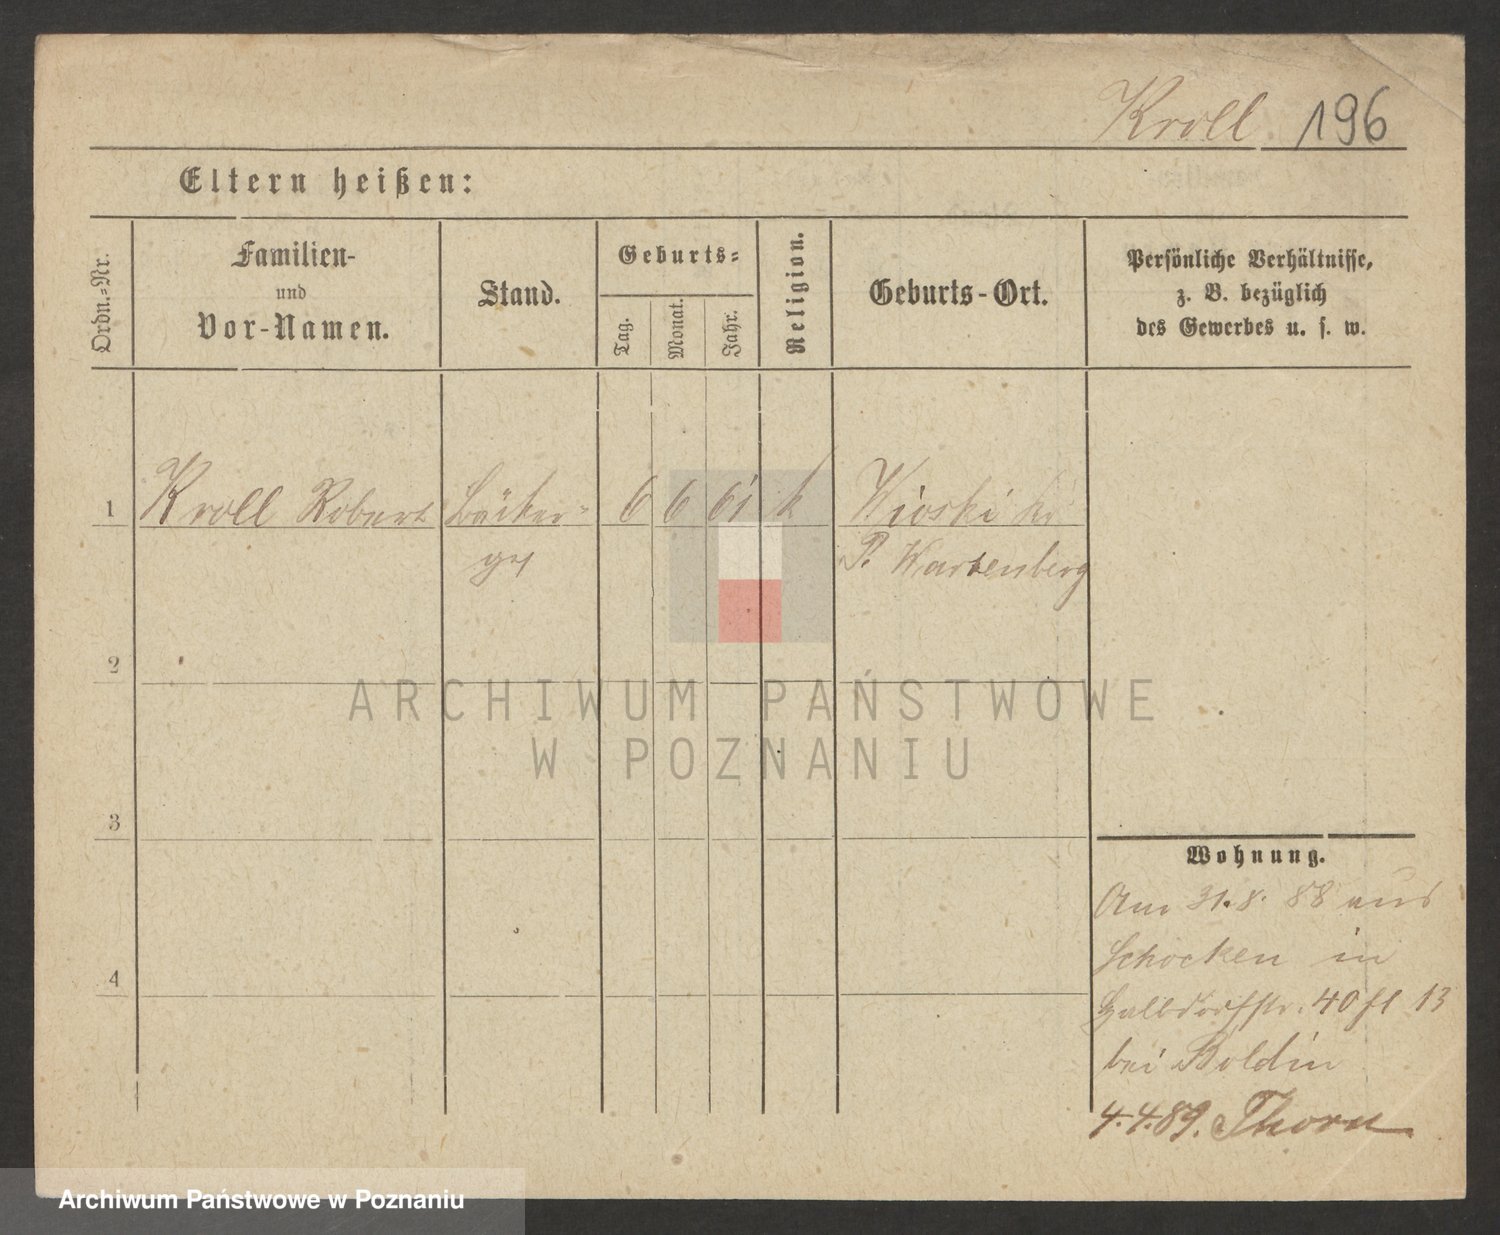 Kroll 196
Eltern heißen:
Ordn.-Nr.
Familien-
und
Vor-Namen.
Stand.
Geburts-
Tag.
Monat.
Jahr.
Religion.
Geburts-Ort.
Persönliche Verhältnisse,
z. B. bezüglich
des Gewerbes u. s. w.
1 Kroll Robert Bäcker- 6 6 61 k
P. Wartenberg
2
ARCHIWUM PAŃSTWOWE
W POZNANIU
3
Wohnung.
Am 31.8. 88 aus
Schocken in
Halbdorfstr. 40 13
bei Boldin
4
4.4.89. Thorn
Archiwum Państwowe w Poznaniu